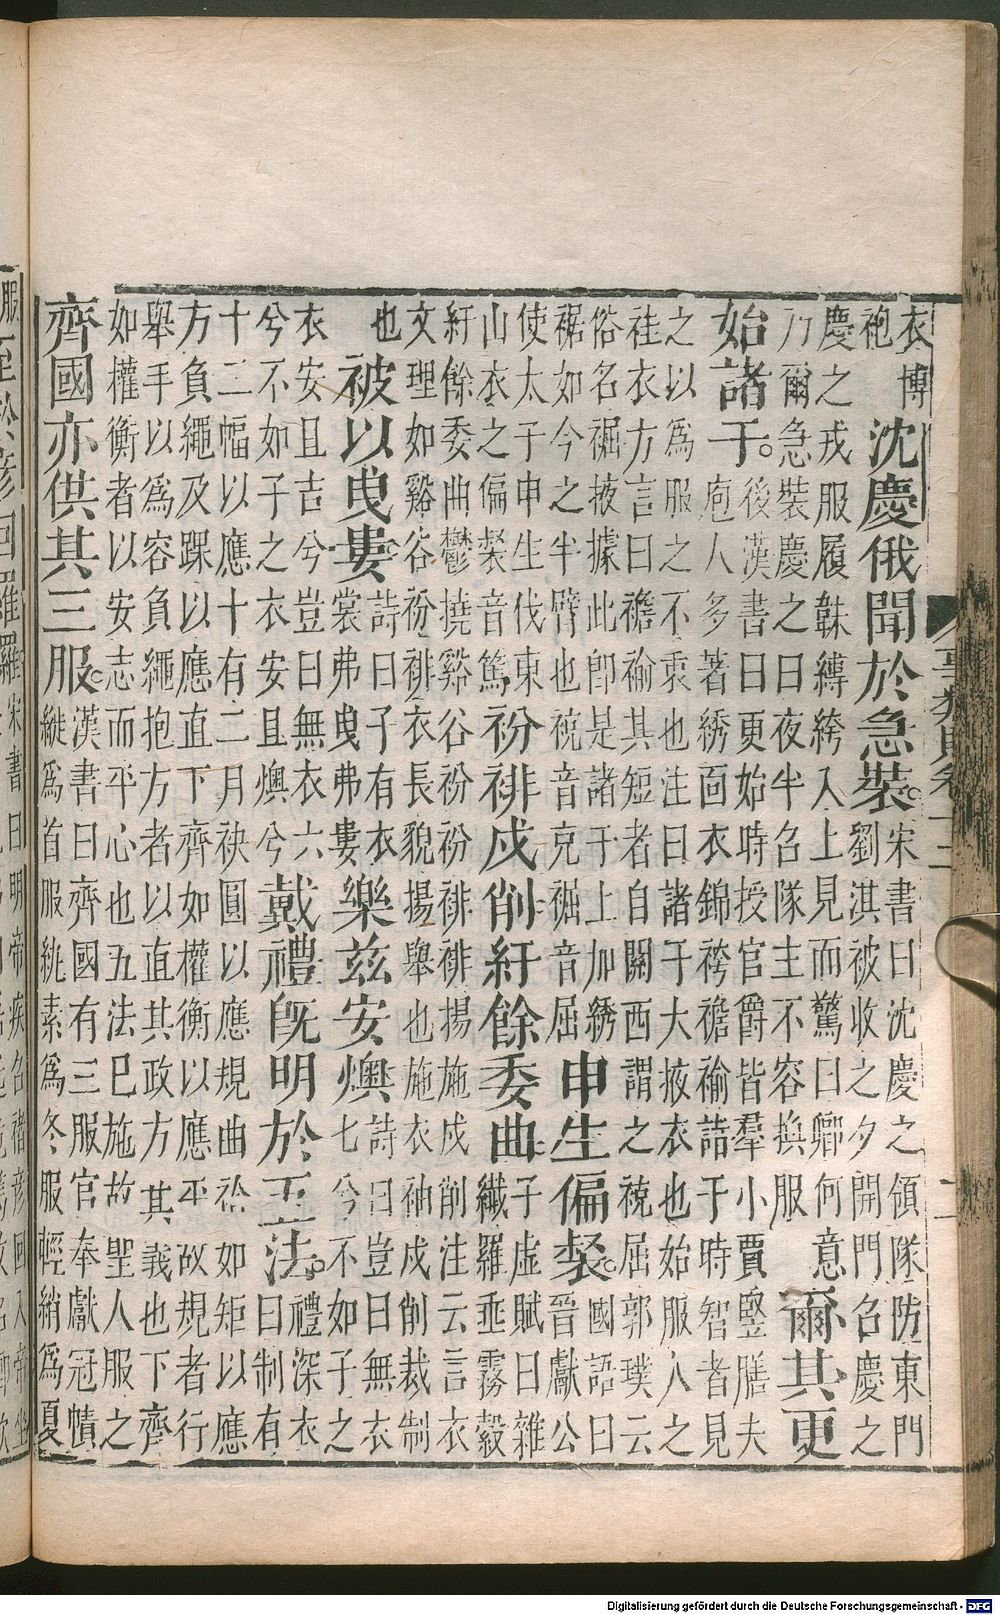 衣博
袍
沈慶俄聞於急裝
宋書曰沈慶之領隊防東門
劉淇被收之夕開門召慶之
慶之戎服履韎縛絝入上見而驚曰卿何意
乃爾急裝慶之曰夜半召隊主不容換服
爾其更
始諸于
後漢書曰更始時授官爵皆羣小賈豎膳夫
庖人多著綉面衣錦袴襜褕詰于時智者見
之以為服之不衷也注曰諸于大掖衣也始服人之
袿衣方言曰襜褕其短者自關西謂之裗屈郭璞云
俗名裾掖據此即是諸于上加綉
裾如今之半臂也裗音克裾音屈
申生偏裻
國語曰
晉獻公
使太子申生伐東
山衣之偏裻音篤
衯裶戍削紆餘委曲
子虛賦曰雜
纖羅垂霧縠
紆餘委曲鬱撓谿谷衯衯裶裶揚施戍削注云言衣
文理如谿谷衯裶衣長貌揚舉也施衣袖戍削裁制
也
被以曳婁
詩曰子有衣
裳弗曳弗婁
樂茲安燠
詩曰豈曰無衣
七兮不如子之
衣安且吉兮豈曰無衣六
兮不如子之衣安且燠兮
戴禮旣明於五法
禮深衣
曰制有
十二幅以應十有二月袂圓以應規曲袷如矩以應
方負繩及踝以應直下齊如權衡以應平故規者行
舉手以為容負繩抱方者以直其政方其義也下齊
如權衡者以安志而平心也五法已施故聖人服之
齊國亦供其三服
漢書曰齊國有三服官奉獻冠幘
縰為首服紈素為冬服輕綃為夏
Digitalisierung gefördert durch die Deutsche Forschungsgemeinschaft - DFG